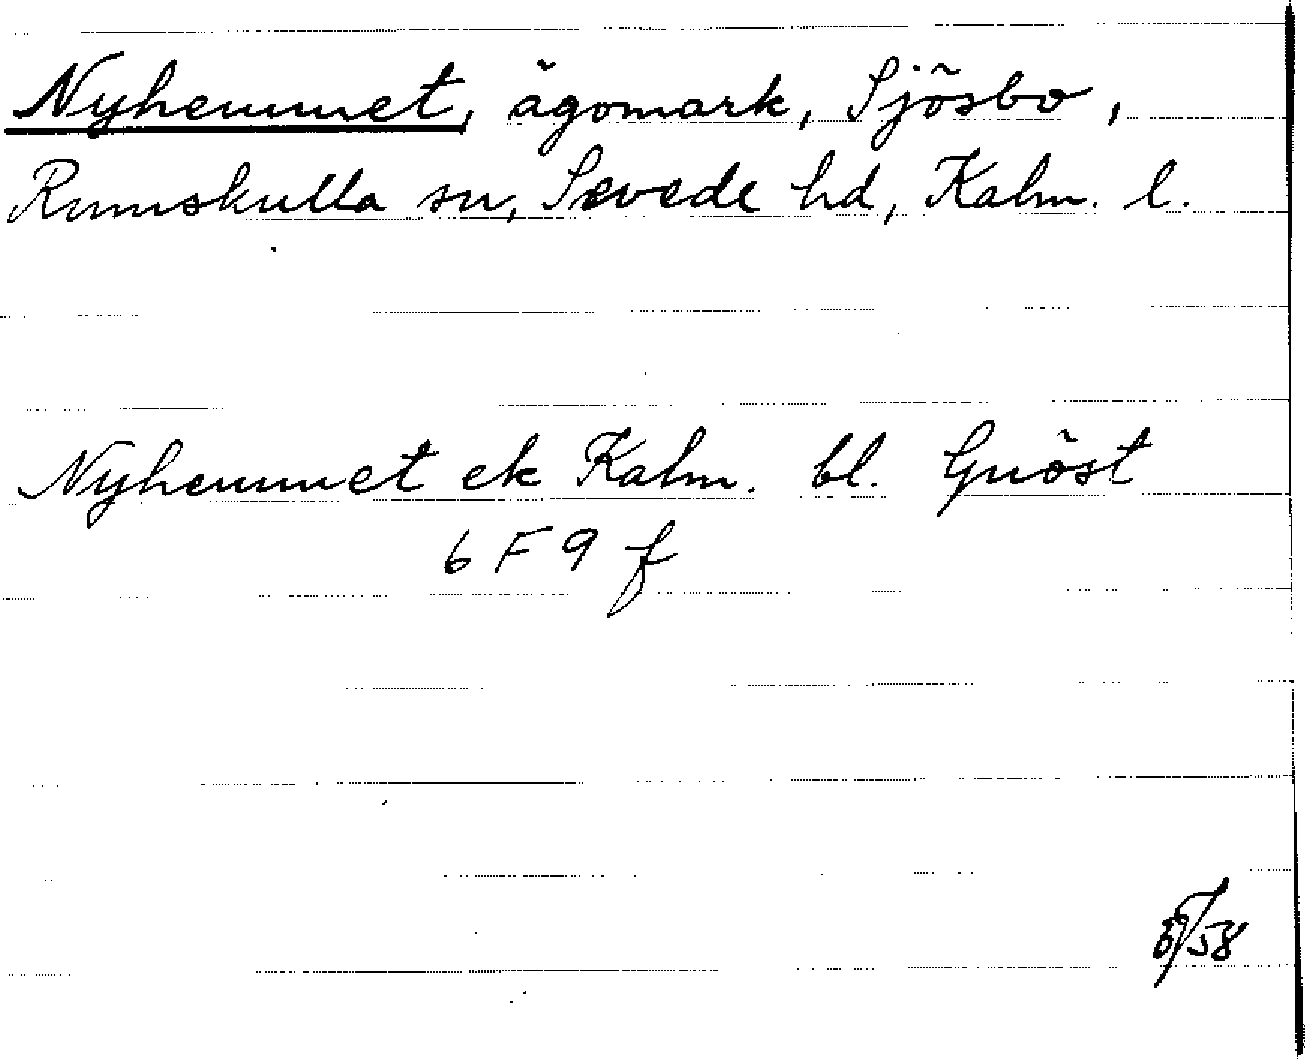 Nyhemmet, ägomark, Sjösbo,
Rumskulla sn, Sevede hd, Kalm. l.
Nyhemmet ek Kalm. bl. Gnöst
6 F 9 f
/58